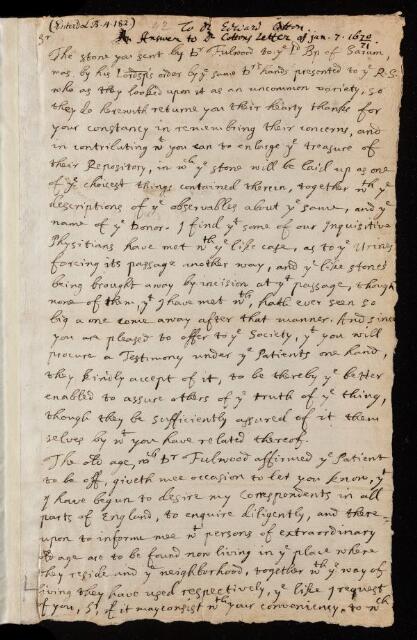 (Enterd L.B. 4. 182) 42 To Dr Edward Cotton.
An Answer to Dr Cottons Letter of jan. 7. 1670/71
Sr
The stone you sent by Dr Fulwood to ye Ld Bp of Sarum,
was, by his Lordsps order by ye same Drs hands presented to ye R.S.
who as they looked upon it as an uncommon variety, so
they do herewith returne you their hearty thanks for
your constancy in remembring their concerns, and
in contributing wt you can to enlarge ye treasure of
their Repository, in wch ye stone will be laid up as one
of ye choicest things contained therein, together wth ye
descriptions of ye observables about ye same, and ye
name of ye Donor. I find yt some of our Inquisitive
Physitians have met wth ye like case, as to ye Urines
forcing its passage another way, and ye like stones
being brought away by incision at yt passage, though
none of them, yt I have met wth, hath ever seen so
big a one come away after that manner. And since
you are pleased to offer to ye Society, yt you will
procure a Testimony under ye Patients one hand,
they kindly accept of it, to be thereby ye better
enabled to assure others of ye truth of ye thing,
though they be sufficiently assured of it them
selves by wt you have related thereof.
The old age, wch Dr Fulwood affirmed ye Patient
to be off, giveth mee occasion to let you know, yt
I have begun to desire my Correspondents in all
parts of England, to enquire diligently, and there-
upon to informe mee wt persons of extraordinary
old age are to be found now living in ye place where
they reside and ye neighborhood, together wth ye way of
living they have used respectively, ye like I request
of you, Sr, if it may consist wth your conveniency. to wch